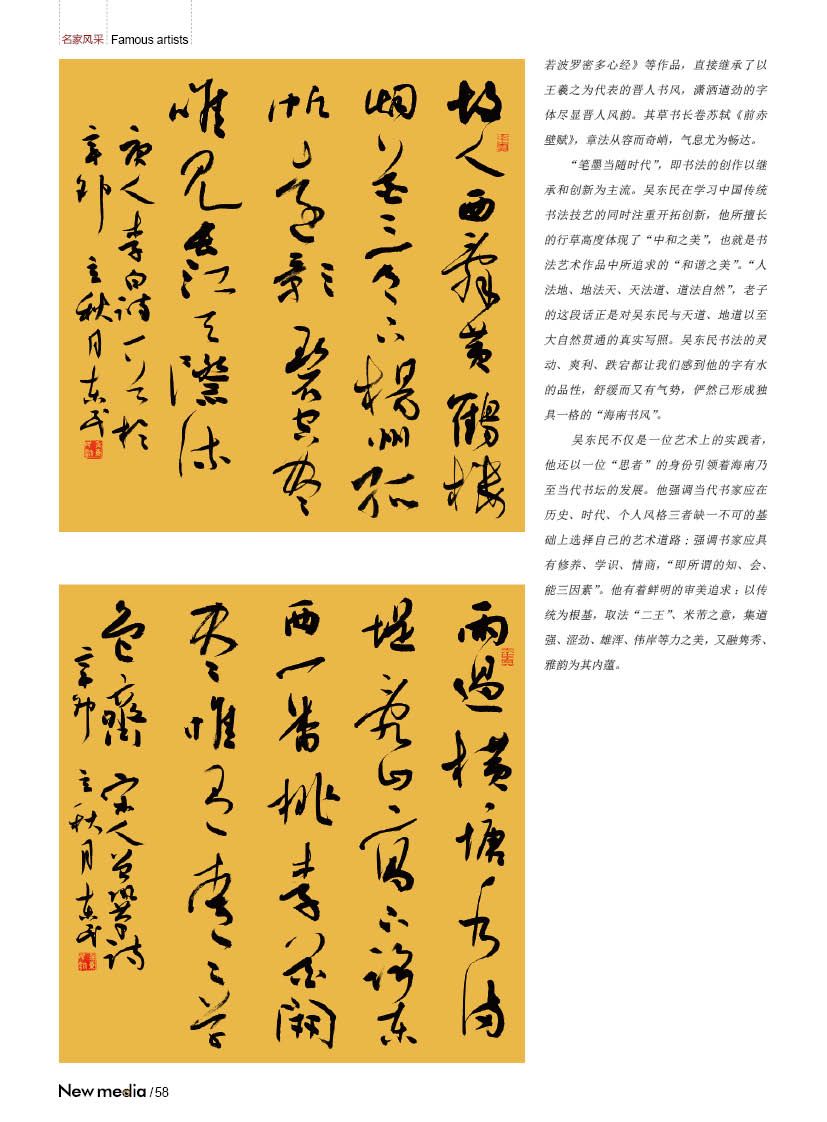 名家风采 Famous artists
故人西辭黄鶴樓
烟花三月下揚州孤
帆遠影碧空盡
唯見長江天際流
唐人李白詩一首於
辛卯 立秋月東民
雨過橫塘水滿
堤亂山高下路東
西一番桃李花開
盡惟有青青草
色齊 宋人曾鞏詩
辛卯 立秋月東民
若波罗密多心经》等作品，直接继承了以
王羲之为代表的晋人书风，潇洒遒劲的字
体尽显晋人风韵。其草书长卷苏轼《前赤
壁赋》，章法从容而奇峭，气息尤为畅达。
“笔墨当随时代”，即书法的创作以继
承和创新为主流。吴东民在学习中国传统
书法技艺的同时注重开拓创新，他所擅长
的行草高度体现了“中和之美”，也就是书
法艺术作品中所追求的“和谐之美”。“人
法地、地法天、天法道、道法自然”，老子
的这段话正是对吴东民与天道、地道以至
大自然贯通的真实写照。吴东民书法的灵
动、爽利、跌宕都让我们感到他的字有水
的品性，舒缓而又有气势，俨然已形成独
具一格的“海南书风”。
吴东民不仅是一位艺术上的实践者，
他还以一位“思者”的身份引领着海南乃
至当代书坛的发展。他强调当代书家应在
历史、时代、个人风格三者缺一不可的基
础上选择自己的艺术道路；强调书家应具
有修养、学识、情商，“即所谓的知、会、
能三因素”。他有着鲜明的审美追求：以传
统为根基，取法“二王”、米芾之意，集遒
强、涩劲、雄浑、伟岸等力之美，又融隽秀、
雅韵为其内蕴。
New media /58